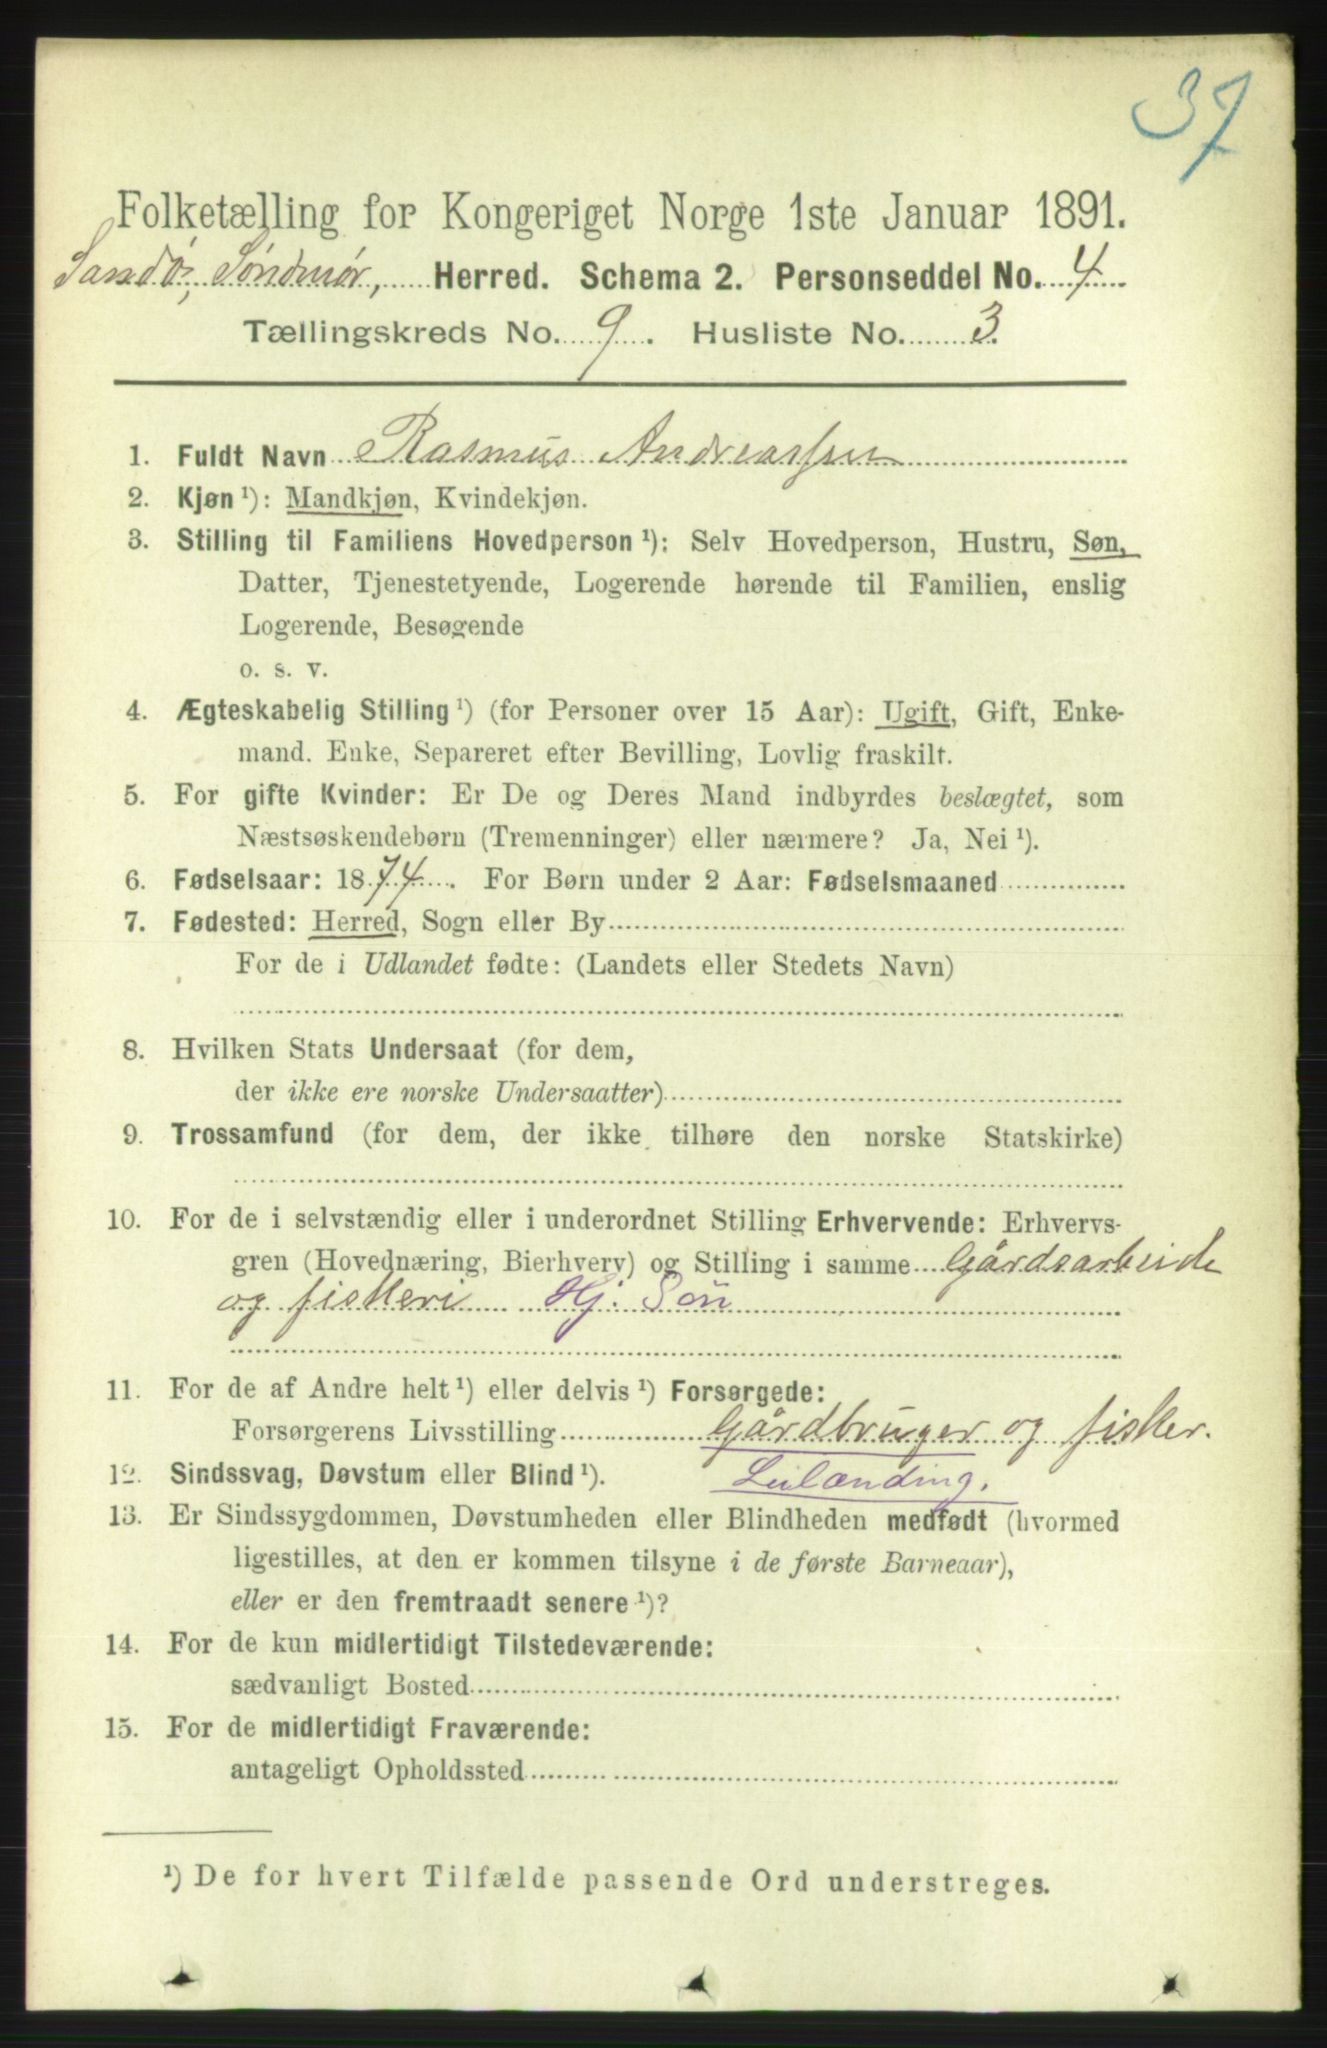 37
Folketælling for Kongeriget Norge 1ste Januar 1891.
Sandø, Søndmør, Herred. Schema 2. Personseddel No. 4
Tællingskreds No. 9. Husliste No. 3.
1. Fuldt Navn Rasmus Andreassen
2. Kjøn ¹): Mandkjøn, Kvindekjøn.
3. Stilling til Familiens Hovedperson ¹): Selv Hovedperson, Hustru, Søn,
Datter, Tjenestetyende, Logerende hørende til Familien, enslig
Logerende, Besøgende
o. s. v.
4. Ægteskabelig Stilling ¹) (for Personer over 15 Aar): Ugift, Gift, Enke-
mand. Enke, Separeret efter Bevilling, Lovlig fraskilt.
5. For gifte Kvinder: Er De og Deres Mand indbyrdes beslægtet, som
Næstsøskendebørn (Tremenninger) eller nærmere? Ja, Nei ¹).
6. Fødselsaar: 1874. For Børn under 2 Aar: Fødselsmaaned
7. Fødested: Herred, Sogn eller By
For de i Udlandet fødte: (Landets eller Stedets Navn)
8. Hvilken Stats Undersaat (for dem,
der ikke ere norske Undersaatter)
9. Trossamfund (for dem, der ikke tilhøre den norske Statskirke)
10. For de i selvstændig eller i underordnet Stilling Erhvervende: Erhvervs-
gren (Hovednæring, Bierhverv) og Stilling i samme Gårdsarbeide
og fiskeri Hj. Søn
11. For de af Andre helt ¹) eller delvis ¹) Forsørgede:
Forsørgerens Livsstilling Gårdbruger og fisker.
12. Sindssvag, Døvstum eller Blind ¹). Leilænding.
13. Er Sindssygdommen, Døvstumheden eller Blindheden medfødt (hvormed
ligestilles, at den er kommen tilsyne i de første Barneaar),
eller er den fremtraadt senere ¹)?
14. For de kun midlertidigt Tilstedeværende:
sædvanligt Bosted
15. For de midlertidigt Fraværende:
antageligt Opholdssted
¹) De for hvert Tilfælde passende Ord understreges.